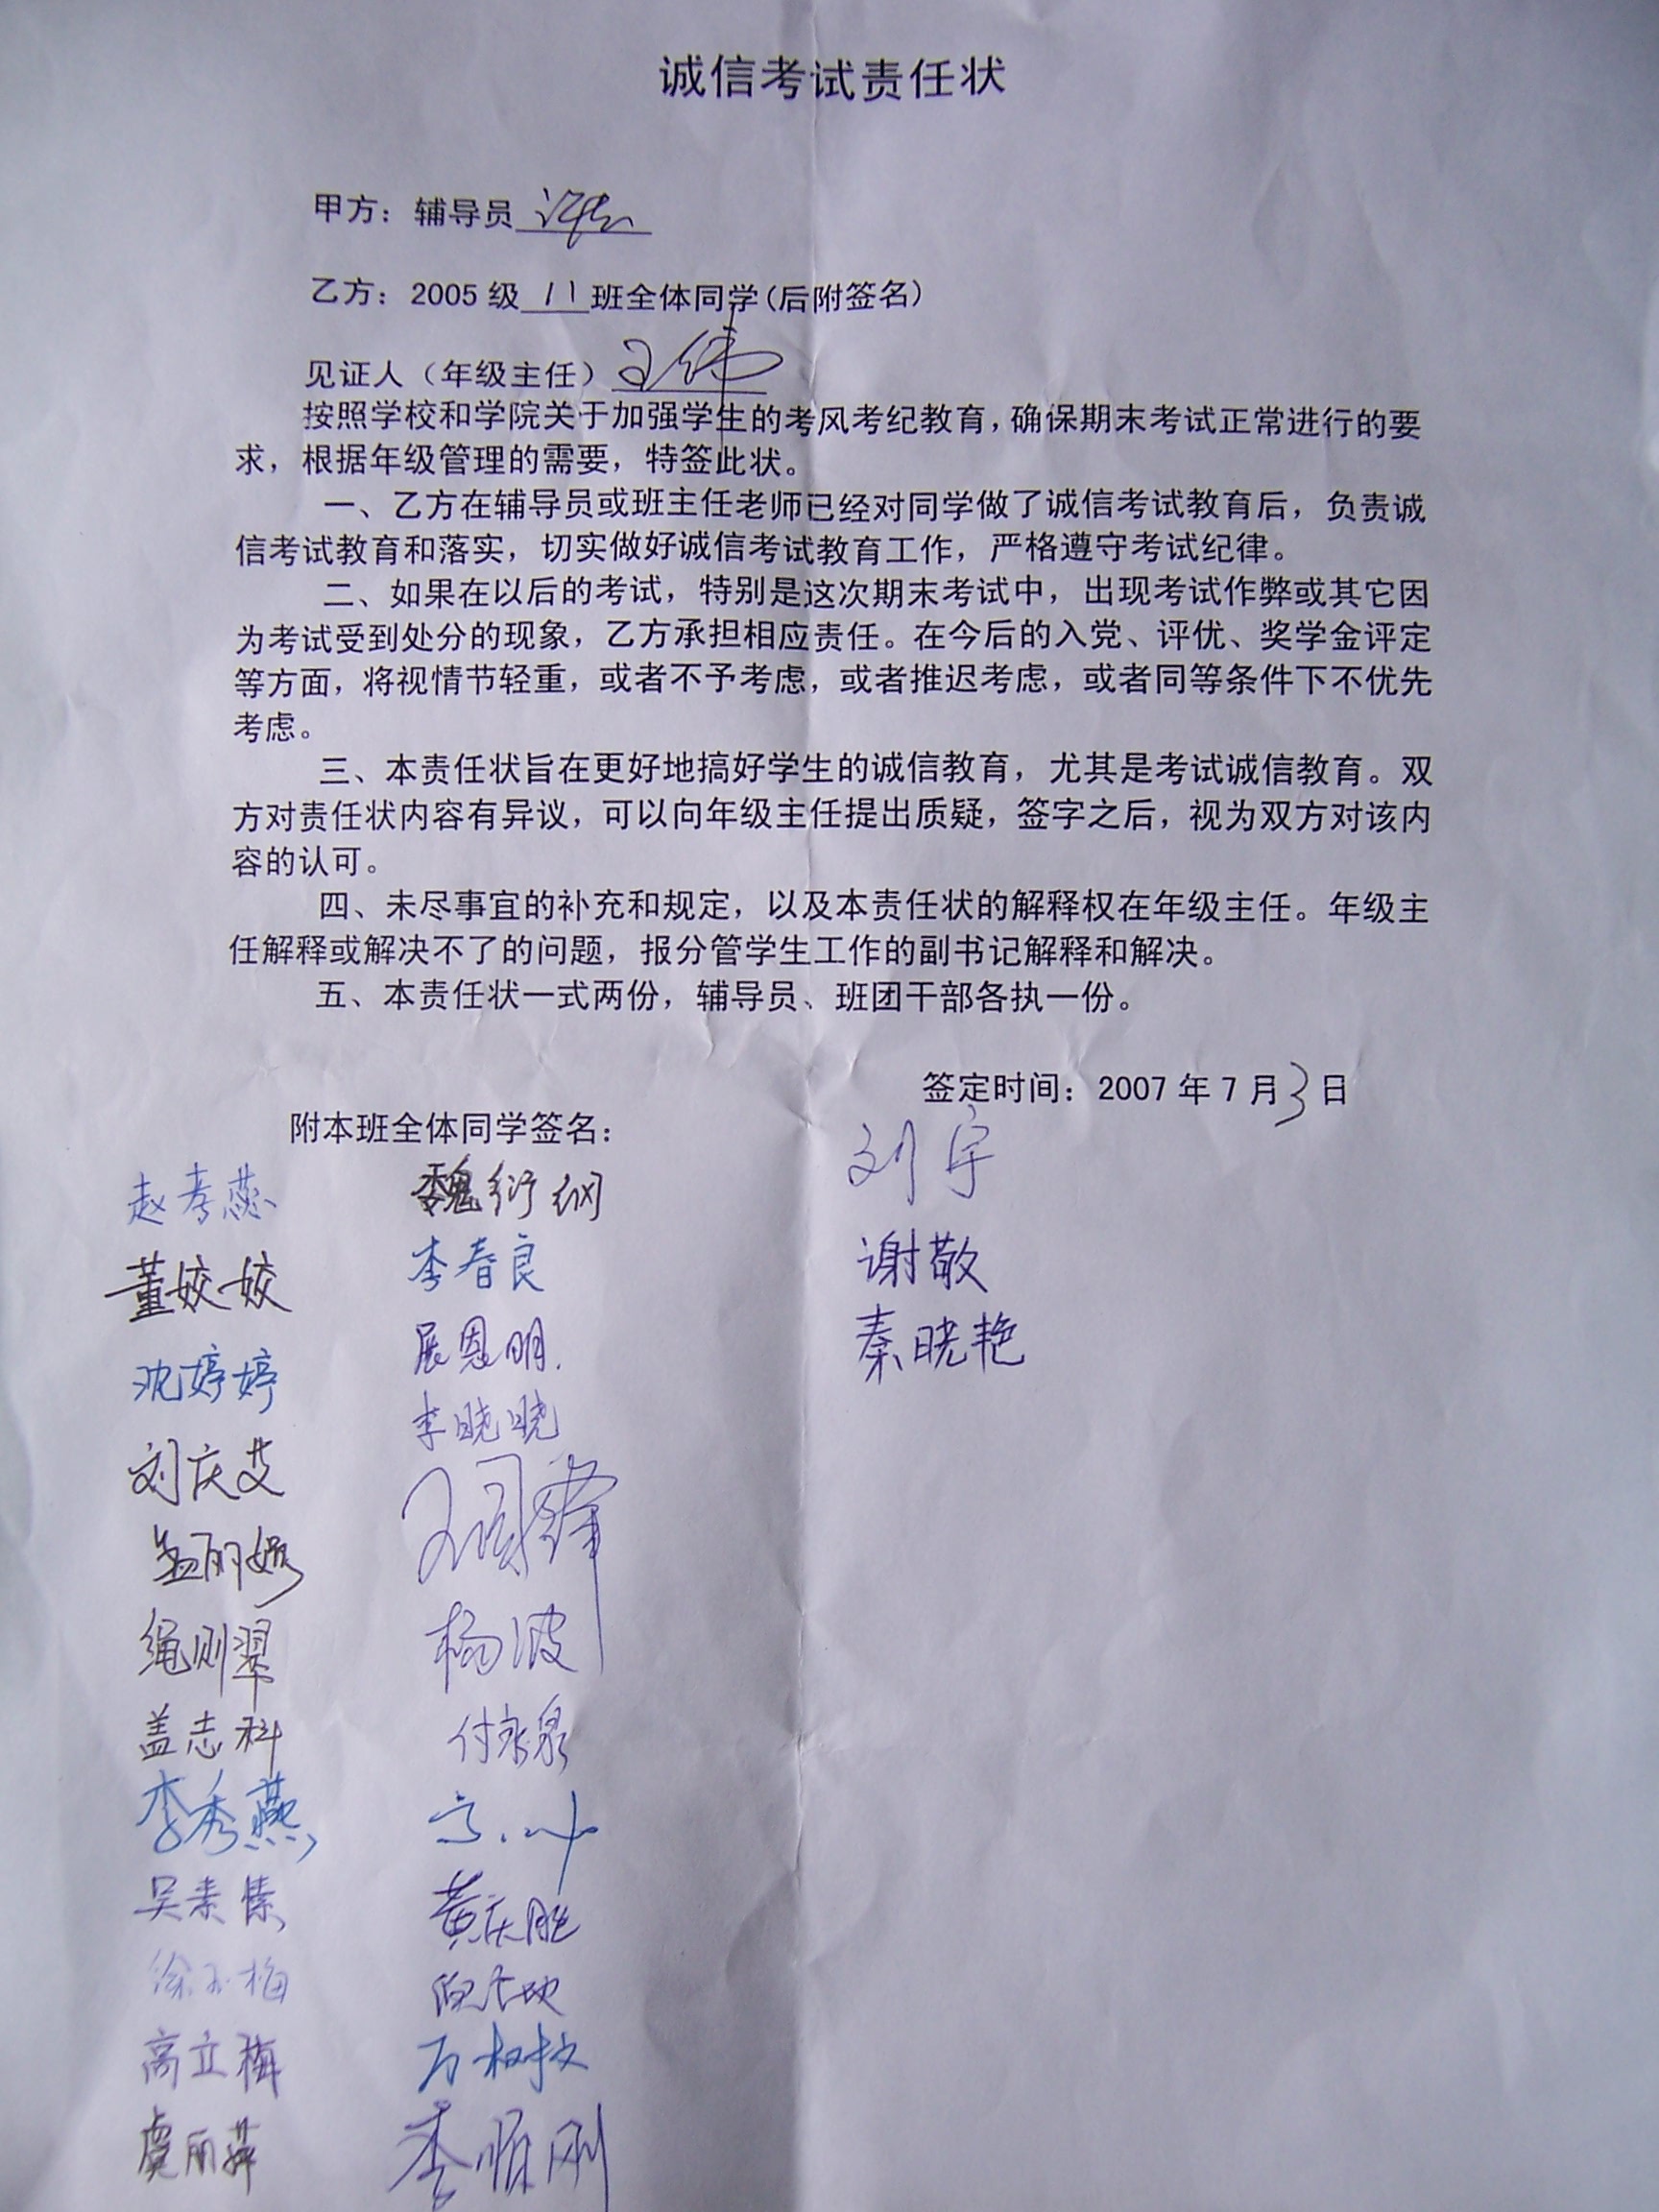 诚信考试责任状
甲方：辅导员
乙方：2005级 11 班全体同学(后附签名)
见证人（年级主任）王伟
按照学校和学院关于加强学生的考风考纪教育，确保期末考试正常进行的要
求，根据年级管理的需要，特签此状。
一、乙方在辅导员或班主任老师已经对同学做了诚信考试教育后，负责诚
信考试教育和落实，切实做好诚信考试教育工作，严格遵守考试纪律。
二、如果在以后的考试，特别是这次期末考试中，出现考试作弊或其它因
为考试受到处分的现象，乙方承担相应责任。在今后的入党、评优、奖学金评定
等方面，将视情节轻重，或者不予考虑，或者推迟考虑，或者同等条件下不优先
考虑。
三、本责任状旨在更好地搞好学生的诚信教育，尤其是考试诚信教育。双
方对责任状内容有异议，可以向年级主任提出质疑，签字之后，视为双方对该内
容的认可。
四、未尽事宜的补充和规定，以及本责任状的解释权在年级主任。年级主
任解释或解决不了的问题，报分管学生工作的副书记解释和解决。
五、本责任状一式两份，辅导员、班团干部各执一份。
签定时间：2007年7月3日
附本班全体同学签名：
赵孝燕
董姣姣
沈婷婷
刘庆艾
孟丽娜
绳则翠
盖志科
李秀燕
吴素倩
徐玉梅
高立梅
虞丽萍
魏衍纲
李春良
展恩明
李晓晓
杨波
付永泉
黄庆胜
李顺刚
刘宇
谢敬
秦晓艳